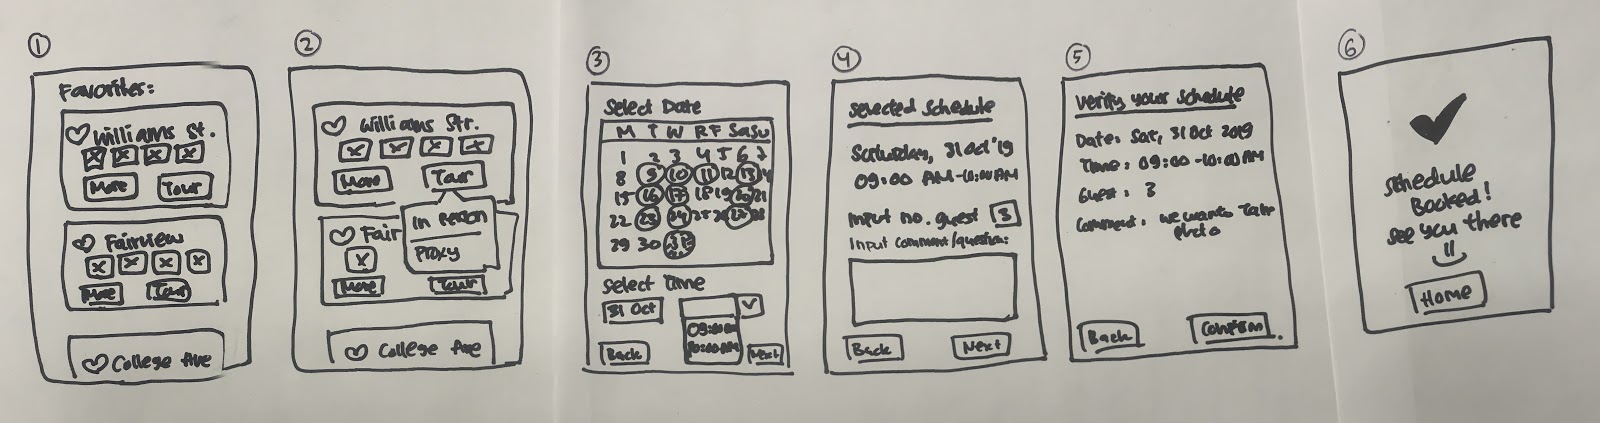 1
Favorites:
Williams St.
More Tour
Fairview
More Tour
College Ave
2
Williams Str.
More Tour
In Person
Proxy
Fair
More Tour
College Ave
3
Select Date
M T W R F Sa Su
1 2 3 4 5 6 7
8 9 10 11 12 13 14
15 16 17 18 19 20 21
22 23 24 25 26 27 28
29 30 31
Select Time
31 Oct
09:00 AM
10:00 AM
Back Next
4
Selected Schedule
Saturday, 31 Oct '19
09:00 AM-10:00 AM
Input no. guest 3
Input comment/question:
Back Next
5
Verify your Schedule
Date: Sat, 31 Oct 2019
Time: 09:00-10:00 AM
Guest: 3
Comment: we want to take
photo
Back Confirm
6
Schedule
Booked!
See you there
Home